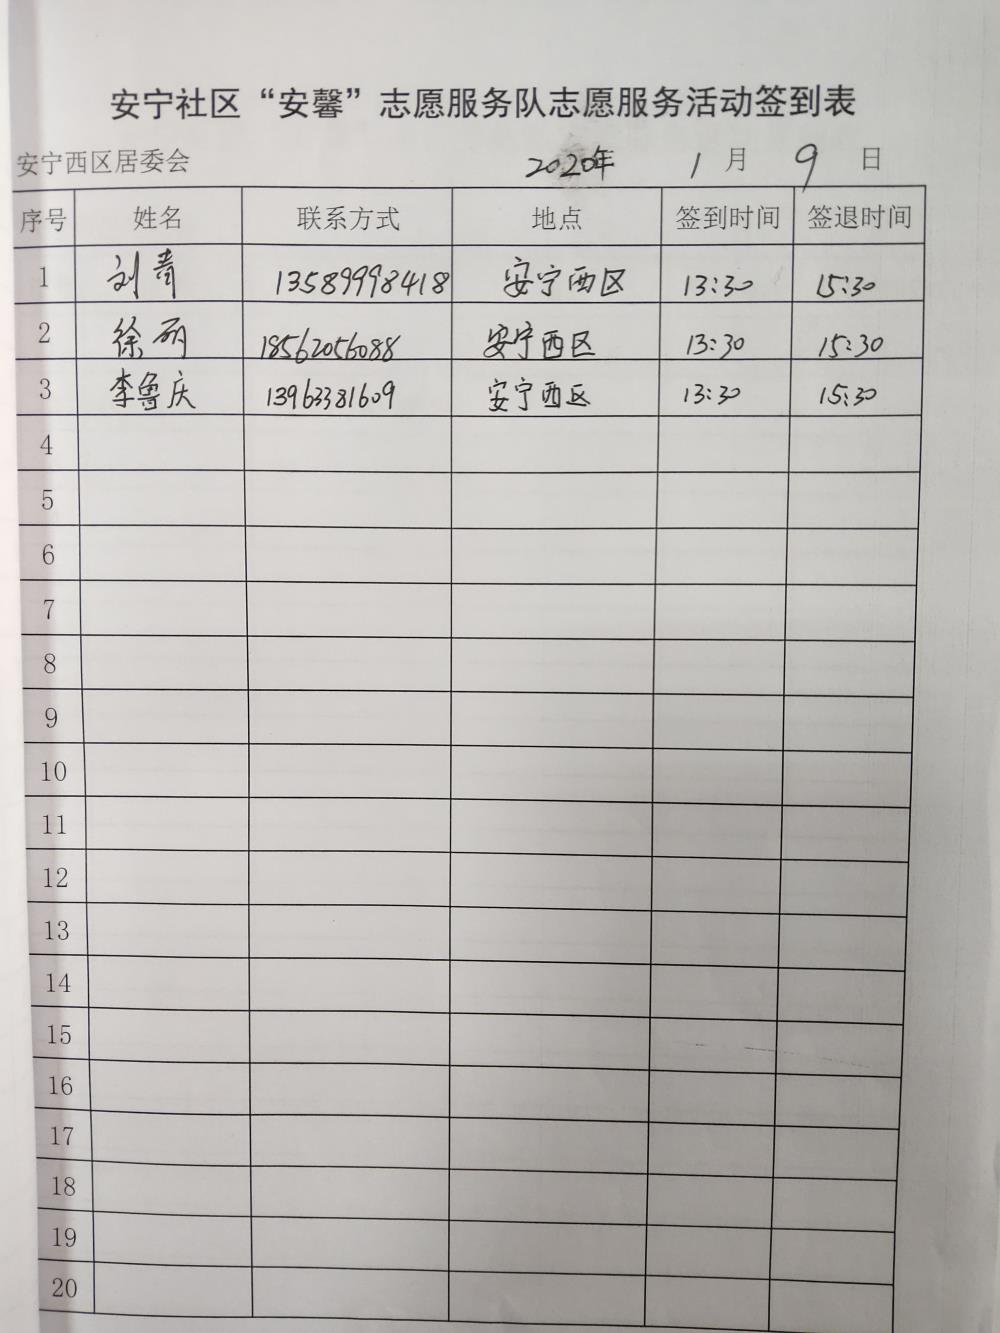 安宁社区“安馨”志愿服务队志愿服务活动签到表
安宁西区居委会 2020年 1 月 9 日
序号 姓名 联系方式 地点 签到时间 签退时间
1 刘青 13589998418 安宁西区 13:30 15:30
2 徐丽 18562056088 安宁西区 13:30 15:30
3 李鲁庆 13963381609 安宁西区 13:30 15:30
4
5
6
7
8
9
10
11
12
13
14
15
16
17
18
19
20